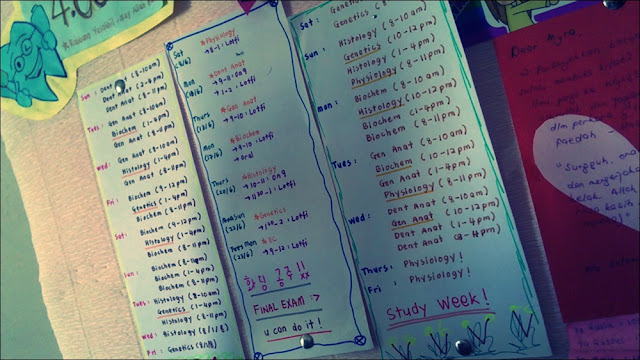 4:00
Sun : Dent Anat (8-10am)
Dent Anat (2-4pm)
Dent Anat (8-11pm)
Tues : Gen Anat (8-10am)
Biochem (1-4pm)
Gen Anat (8-11pm)
Wed : Gen Anat (8-10am)
Histology (1-4pm)
Gen Anat (8-11pm)
Fri : Biochem (9-12pm)
Genetics (1-4pm)
Biochem (8-11pm)
Sat : Biochem (9-12pm)
Histology (1-4pm)
Biochem (8-11pm)
Sun : Biochem (8-11am)
Biochem (1-4pm)
Biochem (8-11pm)
Tues : Histology (8-10am)
Genetics (1-4pm)
Histology (8-11pm)
Wed : Histology
Fri : Genetics
Sat
*Physiology
→ 8-1 : Lotfi
*Dent Anat
→ 9-11 : Ong
→ 1-2 : Lotfi
Thurs
*Gen Anat
→ 9-10 : Lotfi
Mon
*Biochem
→ 9-10
→ Oral
Thurs
*Histology
→ 10-11 : Ong
Lotfi
*Genetics
: Lotfi
→ 9-12 : Lotfi
FINAL EXAM :->
u can do it !
Sat :
Genetics (8-
Sun :
Histology (8-10am)
Genetics (10-12pm)
Histology (1-4pm)
Physiology (8-11pm)
Mon :
Biochem (8-10am)
Histology (10-12pm)
Biochem (1-4pm)
Biochem (8-11pm)
Tues :
Gen Anat (8-10am)
Biochem (10-12pm)
Gen Anat (1-4pm)
Physiology (8-11pm)
Wed :
Dent Anat (8-10am)
Gen Anat (10-12pm)
Dent Anat (1-4pm)
Dent Anat (8-11pm)
Thurs : Physiology !
Fri : Physiology !
Study Week !
Dear Myra,
untuk
dan
"Sungguh, orang
dan mengerjakan